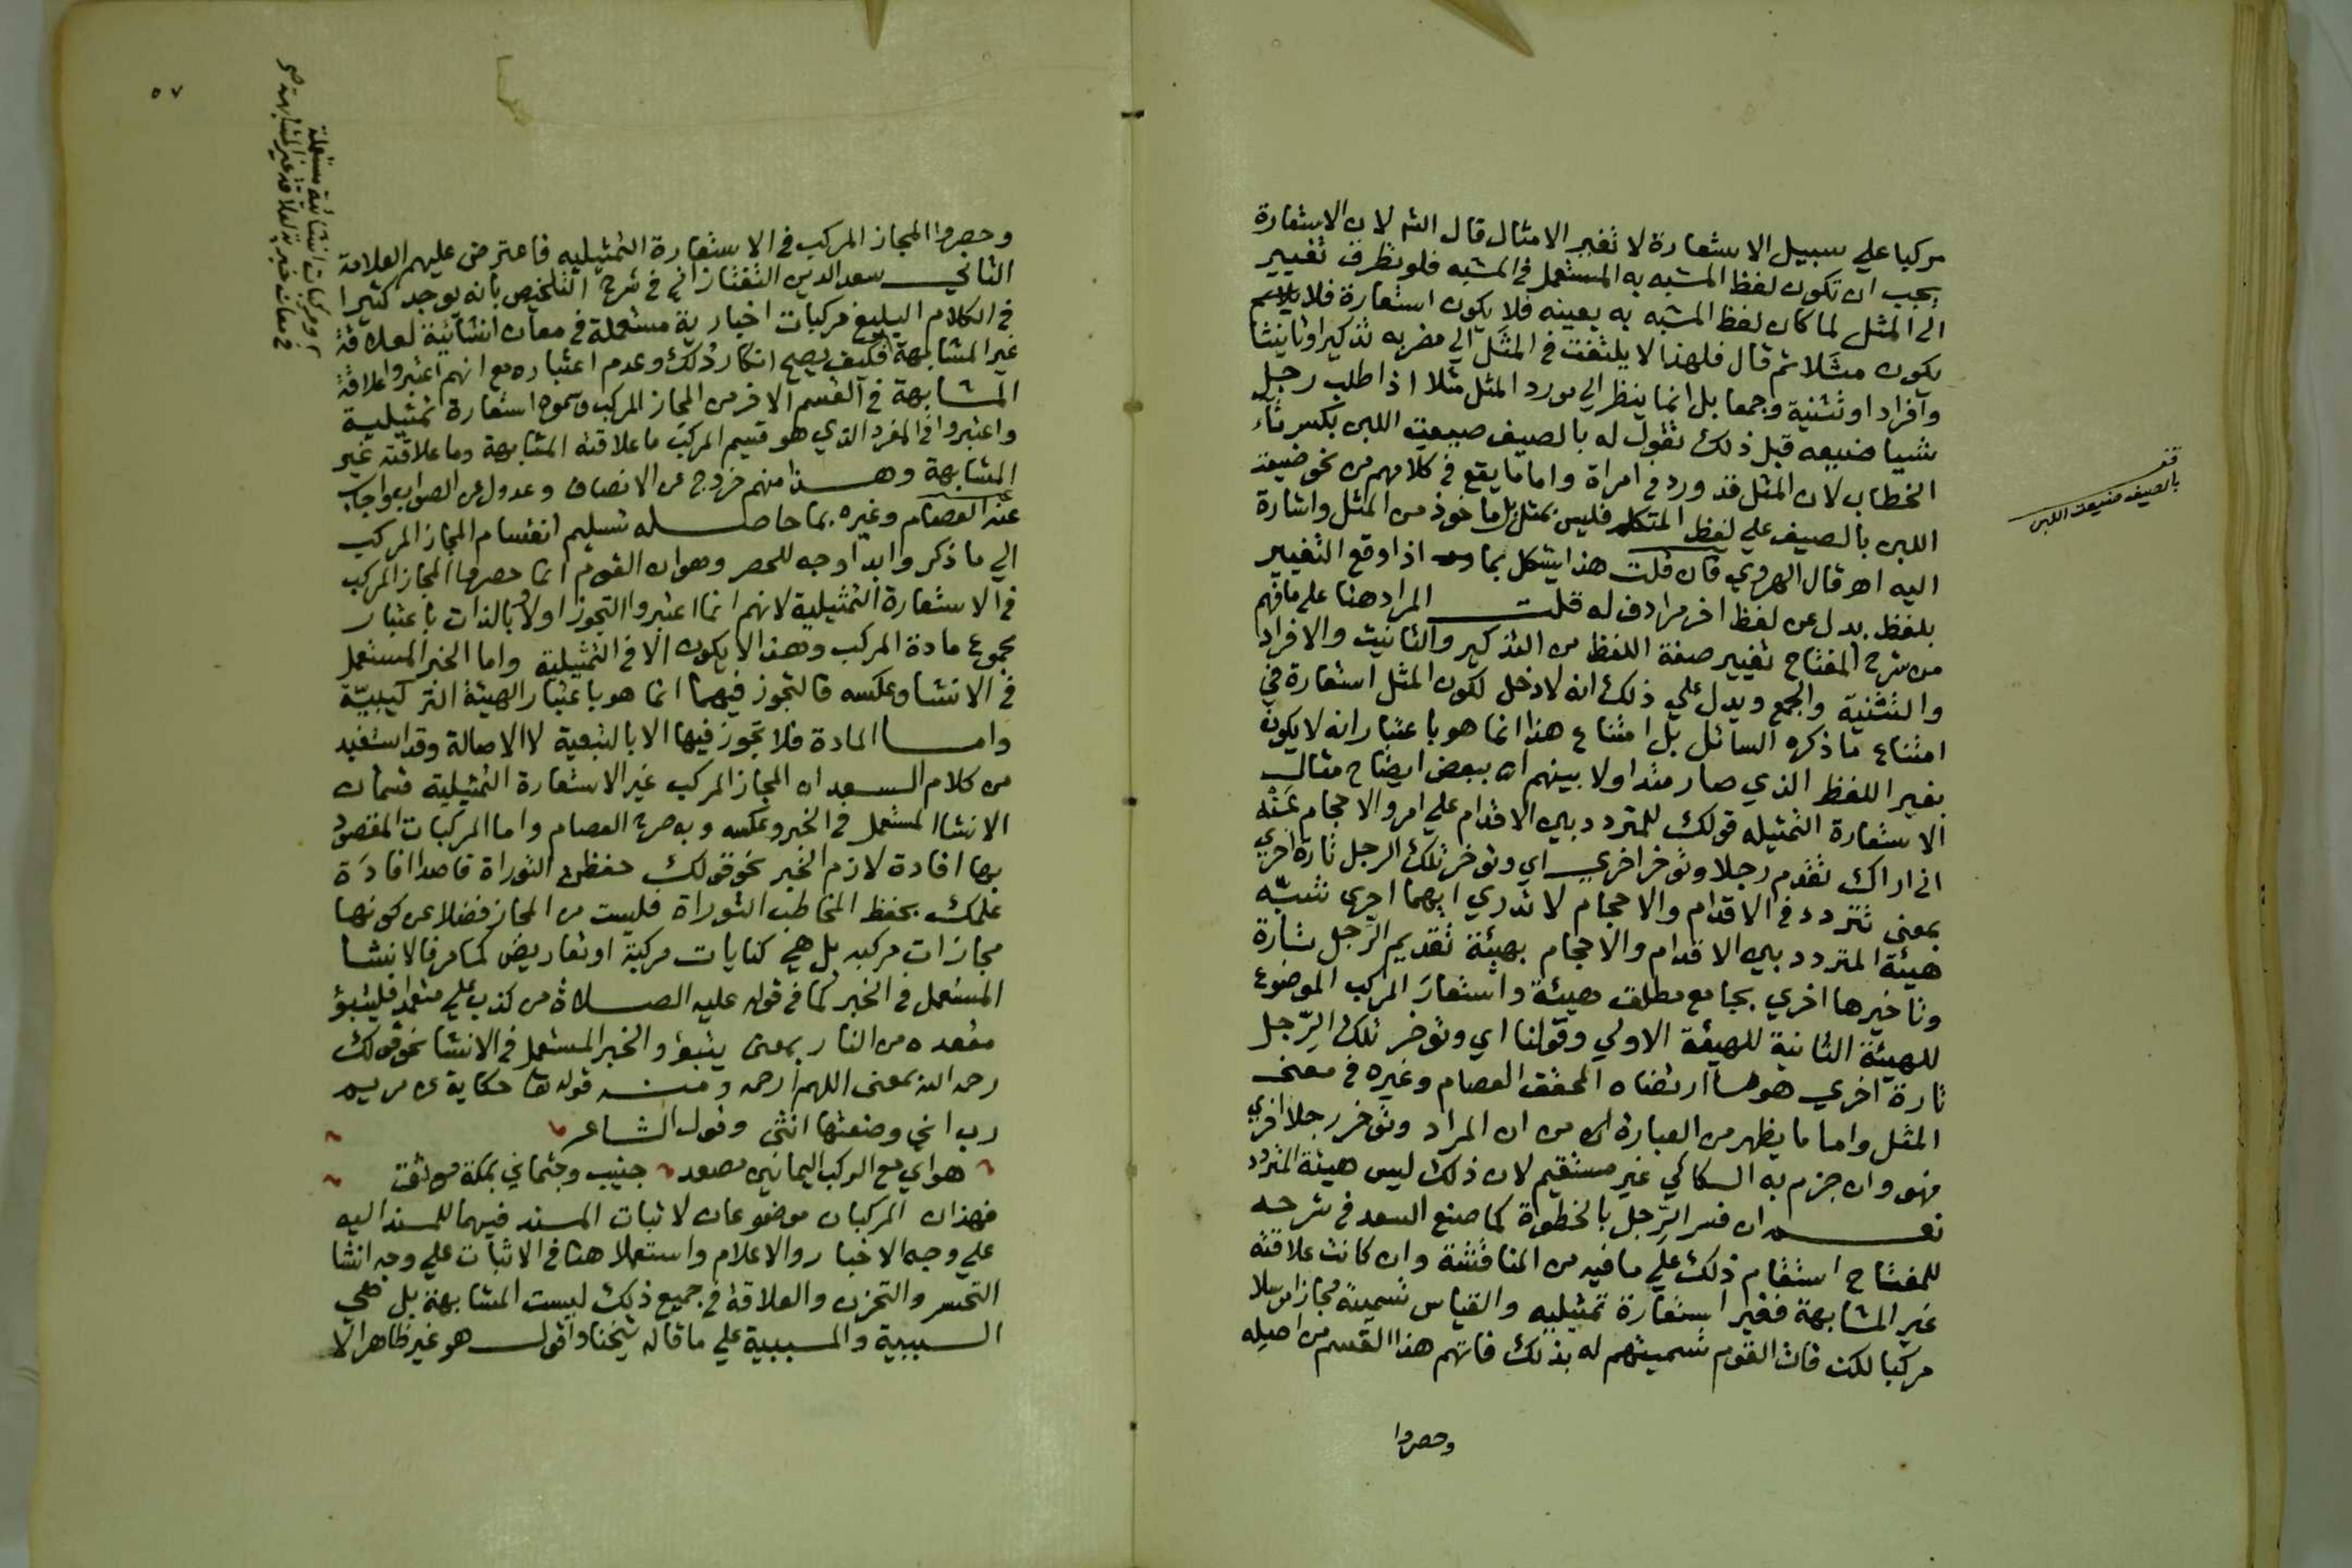 مركبا علي سبيل الاستعارة لا تغير الامثال قال الش لان الاستعارة
يجب ان تكون لفظ المشبه به المستعمل في المشبه فلو تطرق تغيير
الى المثل لما كان لفظ المشبه به بعينه فلا يكون استعارة فلا
يكون مثلا ثم قال فلهذا لا يلتفت في المثل الي مضربه تذكيرا وتانيثا
وافرادا وتثنية وجمعا بل انما ينظر الي مورد المثل مثلا اذا طلب رجل
شيا ضيعه قبل ذلك تقول له بالصيف ضيعت اللبن بكسر تاء
الخطاب لان المثل قد ورد في امراة واما ما يقع في كلامهم من نحو ضيعت
اللبن بالصيف علي لفظ المتكلم فليس بمثل بل ماخوذ من المثل واشارة
اليه اهـ قال الهروي فان قلت هذا يشكل بما اذا وقع التغيير
بلفظ بدل عن لفظ اخر مرادف له قلت المراد هنا علي ما فهم
من شرح المفتاح تغيير صفة اللفظ من التذكير والتانيث والافراد
والتثنية والجمع ويدل علي ذلك انه لا دخل لكون المثل استعارة في
امتناع ما ذكره السائل بل امتناع هذا انما هو باعتبار انه لا يكون
بغير اللفظ الذي صار متداولا بينهم اهـ ببعض ايضاح مثال
الاستعارة التمثيليه قولك للمتردد بين الاقدام علي امر والاحجام عنه
اني اراك تقدم رجلا وتوخر اخري اي وتوخر تلك الرجل تارة اخري
بمعنى تتردد في الاقدام والاحجام لا تدري ايهما احرى شبه
هيئة المتردد بين الاقدام والاحجام بهيئة تقديم الرجل تارة
وتاخيرها اخري بجامع مطلق هيئة واستعار المركب الموضوع
للهيئة الثانية للهيئة الاولي وقولنا اي وتوخر تلك الرجل
تارة اخري هو ما ارتضاه المحقق العصام وغيره في معنى
المثل واما ما يظهر من العبارة من ان المراد وتوخر رجلا اخري
فهو وان جزم به السكاكي غير مستقيم لان ذلك ليس هيئة المتردد
نعم ان فسر الرجل بالخطوة كما صنع السعد في شرحه
للمفتاح استقام ذلك علي ما فيه من المناقشة وان كانت علاقته
غير المشابهة فغير استعارة تمثيليه والقياس تسميته مجازا مرسلا
مركبا لكن فات القوم تسميتهم له بذلك فاتهم هذا القسم من اصله
وحصروا
قف
بالصيف ضيعت اللبن
٥٧
وحصروا المجاز المركب في الاستعارة التمثيليه فاعترض عليهم العلامة
الثاني سعد الدين التفتازاني في شرح التلخيص بانه يوجد كثيرا
في الكلام البليغ مركبات اخبارية مستعملة في معان انشائية لعلاقة
غير المشابهة فكيف يصح انكار ذلك وعدم اعتباره مع انهم اعتبروا علاقة
المشابهة في القسم الاخر من المجاز المركب وسموه استعارة تمثيلية
واعتبروا في المفرد الذي هو قسيم المركب ما علاقته المشابهة وما علاقته غير
المشابهة وهذا منهم خروج عن الانصاف وعدول عن الصواب واجاب
عنه العصام وغيره بما حاصله تسليم انقسام المجاز المركب
الي ما ذكر وابدا وجه للحصر وهو ان القوم انما حصروا المجاز المركب
في الاستعارة التمثيلية لانهم انما اعتبروا التجوز اولا وبالذات باعتبار
مجموع مادة المركب وهذا لا يكون الا في التمثيلية واما الخبر المستعمل
في الانشا وعكسه فالتجوز فيهما انما هو باعتبار الهيئة التركيبية
واما المادة فلا تجوز فيها الا بالتبعية لا الاصالة وقد استفيد
من كلام السعد ان المجاز المركب غير الاستعارة التمثيلية قسمان
الانشا المستعمل في الخبر وعكسه وبه صرح العصام واما المركبات المقصود
بها افادة لازم الخبر نحو قولك حفظت التوراة قاصدا افادة
علمك بحفظ المخاطب التوراة فليست من المجاز فضلا عن كونها
مجازات مركبه بل هي كنايات مركبة او تعاريض كما مر فالانشا
المستعمل في الخبر كما في قوله عليه الصلاة من كذب علي متعمدا فليتبؤ
مقعده من النار بمعنى يتبؤ والخبر المستعمل في الانشا نحو قولك
رحمه الله بمعنى اللهم ارحمه ومنه قوله تعا حكاية عن مريم
رب اني وضعتها انثى وقول الشاعر
هواي مع الركب اليمانين مصعد جنيب وجثماني بمكة موثق
فهذان المركبان موضوعان لاثبات المسند فيهما للمسند اليه
علي وجه الاخبار والاعلام واستعملا هنا في الاثبات علي وجه انشا
التحسر والتحزن والعلاقة في جميع ذلك ليست المشابهة بل هي
السببية والمسببية علي ما قاله شيخنا واقول هو غير ظاهر الا
ومركبات انشائية مستعملة
في معان خبرية لعلاقة غير المشابهة صح